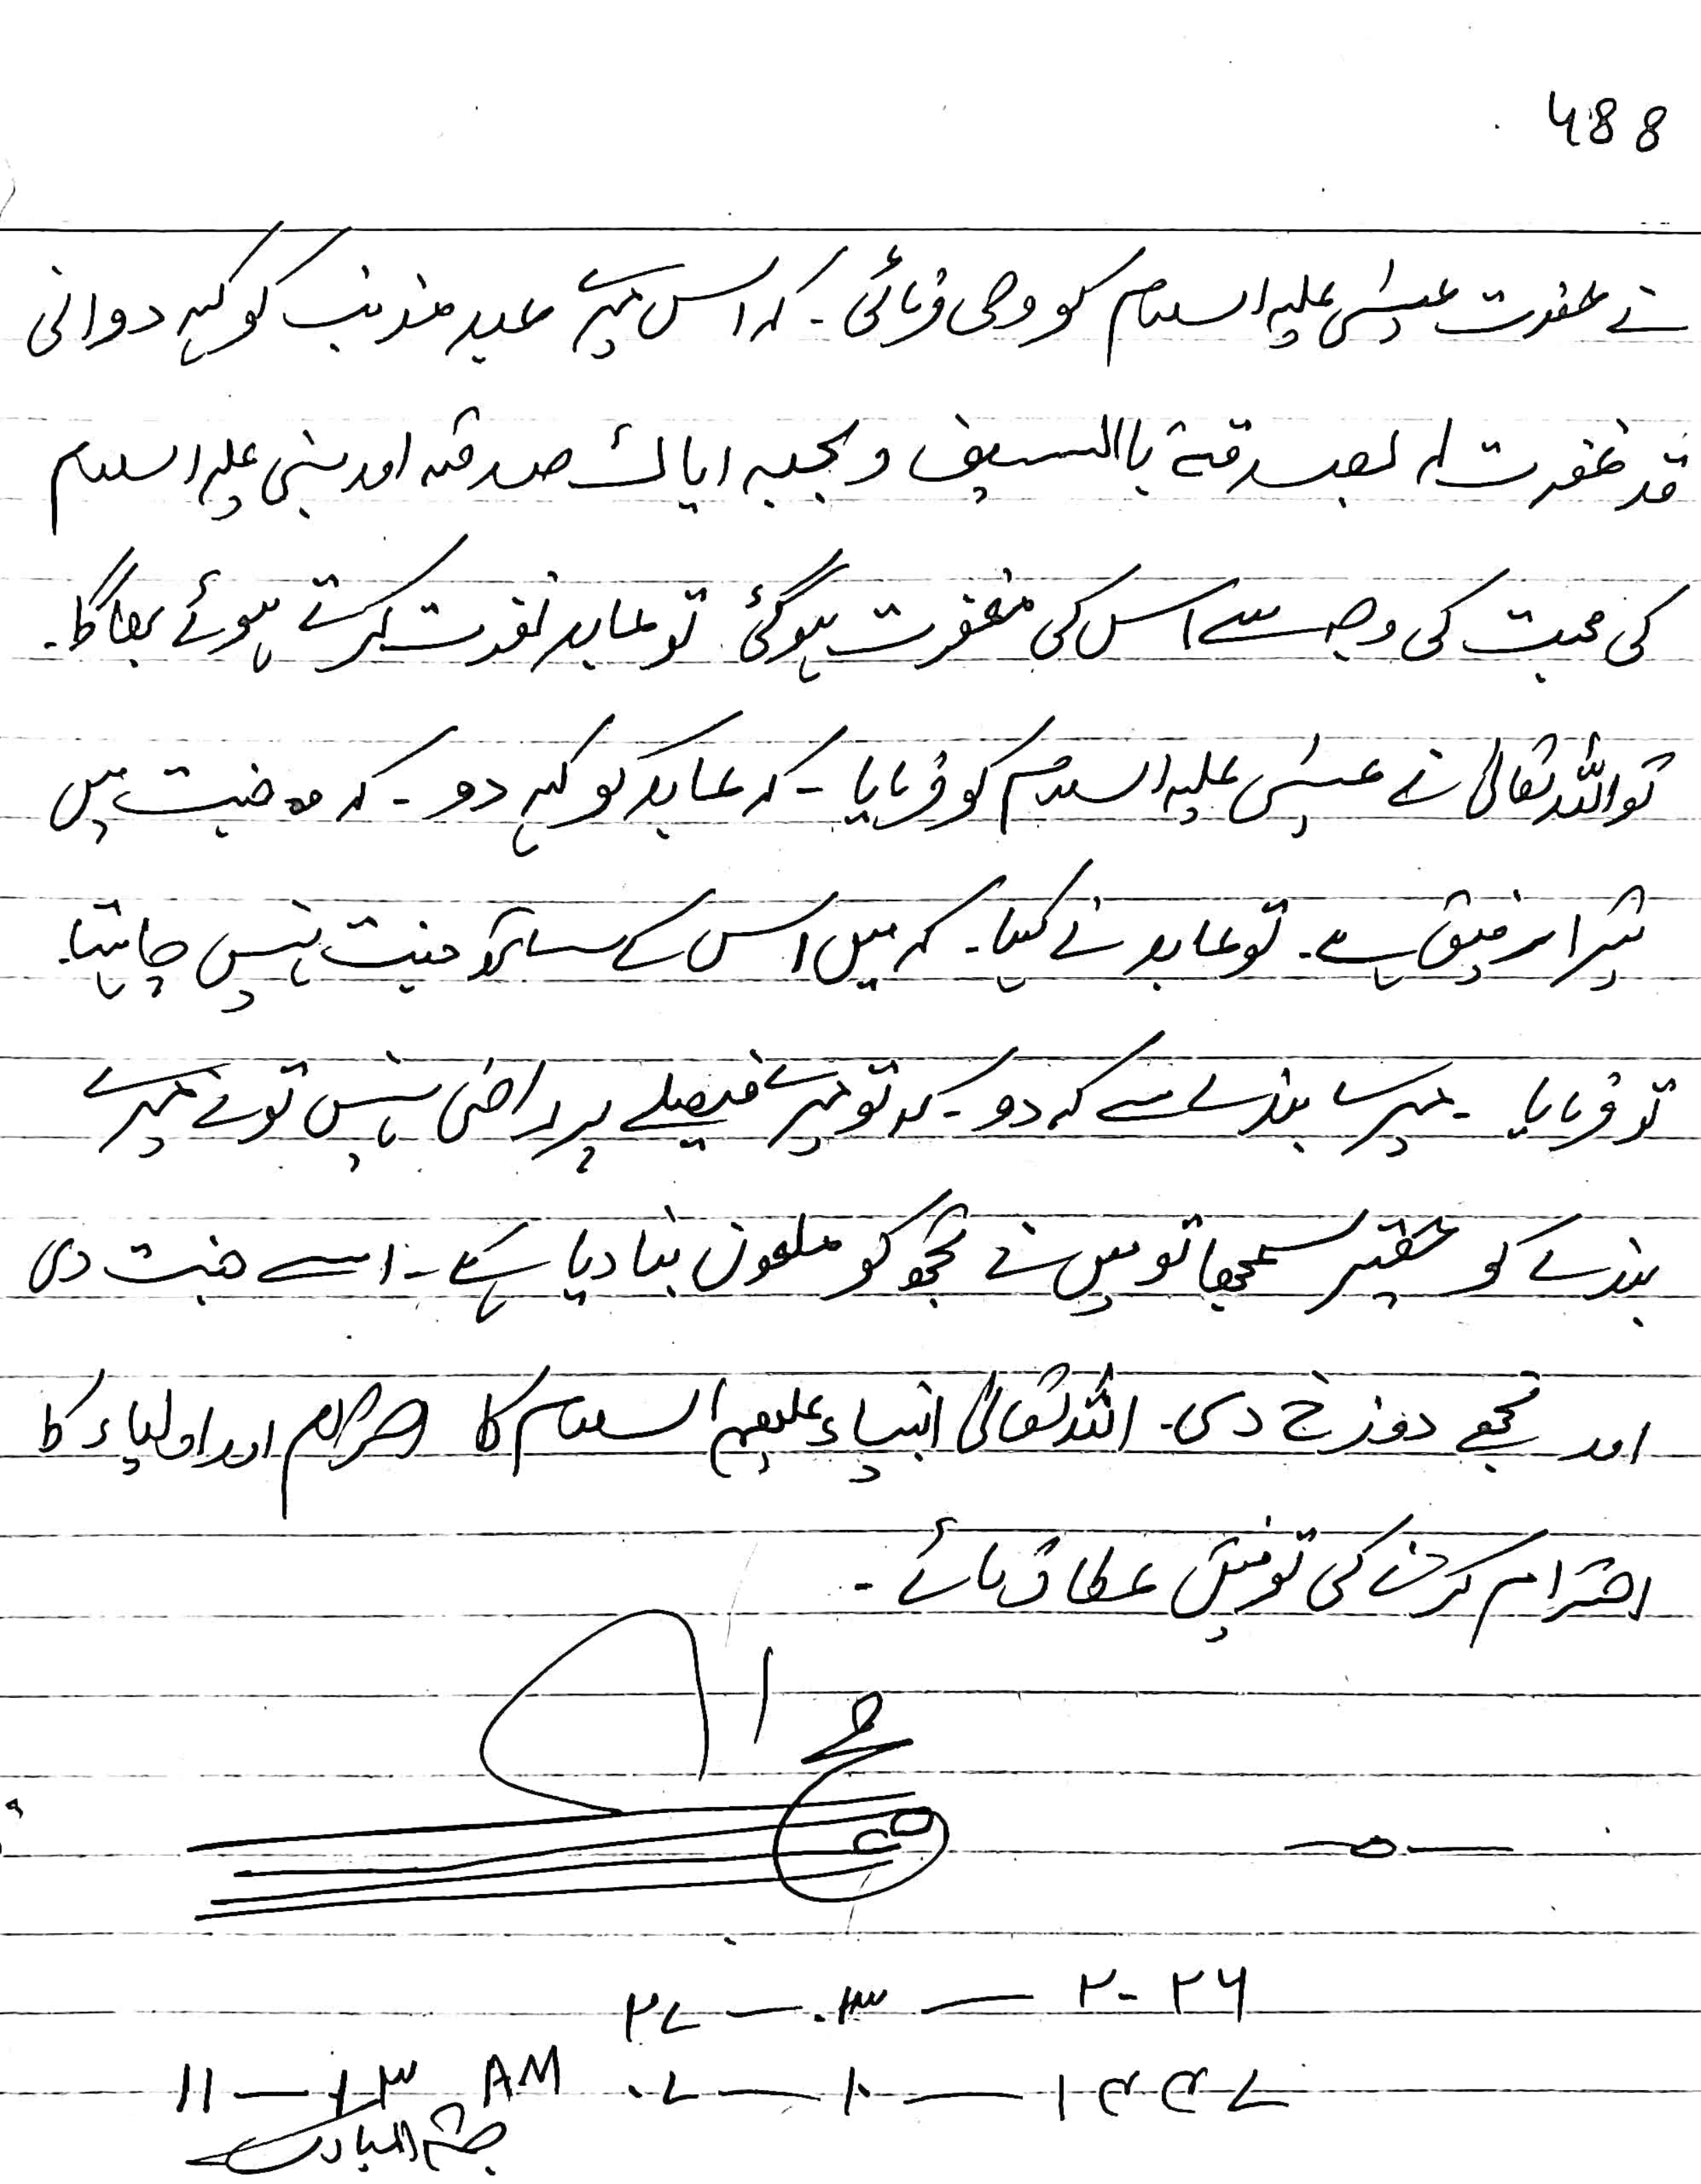 488
نے حضرت عیسٰی علیہ السلام کو وحی فرمائی ۔ کہ اس میرے عبد مذنب کو کہہ دو انی
قد غفرت لہ بصدقة باالسیف و بحبہ ایاک صدقہ اور نبی علیہ السلام
کی محبت کی وجہ سے اس کی مغفرت ہوگئی تو عابد نفرت کرتے ہوئے بھاگا ۔
تو اللہ تعالیٰ نے عیسٰی علیہ السلام کو فرمایا ۔ کہ عابد کو کہہ دو ۔ کہ وہ جنت میں
تیرا رفیق ہے ۔ تو عابد نے کہا ۔ کہ میں اس کے ساتھ جنت نہیں چاہتا ۔
تو فرمایا ۔ میرے بندے سے کہ دو ۔ کہ تو میرے فیصلے پر راضی نہیں تو نے میرے
بندے کو حقیر سمجھا تو میں نے تجھ کو ملعون بنا دیا ہے ۔ اسے جنت دی
اور تجھے دوزخ دی ۔ اللہ تعالیٰ انبیاء علیھم السلام کا احترام اور اولیاء کا
احترام کرنے کی توفیق عطا فرمائے ۔
۲۷ — ۰۳ — ۲۰۲۶
۰۷ — ۱۰ — ۱۴۴۷
۱۱ — ۱۳ AM
جمعۃ المبارک